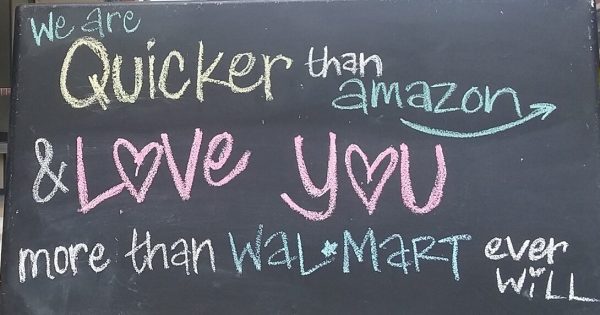 We are
Quicker than
amazon
& Love you
more than WAL*MART ever
WiLL